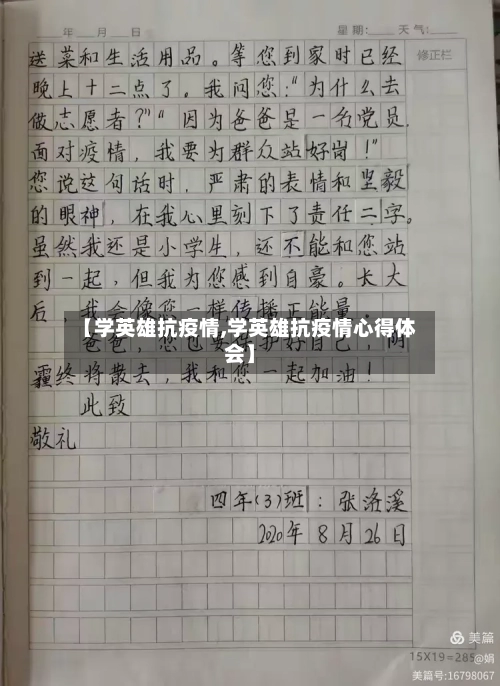 年 月 日 星期: 天气:
修正栏
送菜和生活用品。等您到家时已经
晚上十二点了。我问您:“为什么去
做志愿者?”“因为爸爸是一名党员,
面对疫情,我要为群众站好岗!”
您说这句话时,严肃的表情和坚毅
的眼神,在我心里刻下了责任二字。
虽然我还是小学生,还不能和您站
到一起,但我为您感到自豪。长大
后,我会像您一样传播正能量。
【学英雄抗疫情,学英雄抗疫情心得体
会】
爸爸,您也要保护好自己!阴
霾终将散去,我和您一起加油!
此致
敬礼
四年(3)班:张洛溪
2020年8月26日
美篇
15X19=285
@娟
美篇号:16798067